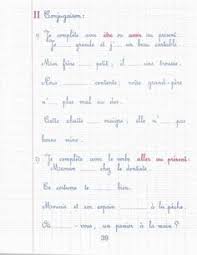 II Conjugaison :
1) Je complète avec être ou avoir au présent.
Je ..... grande et j' ..... un beau cartable.
Mon frère ..... petit ; il ..... une brosse.
Nous ..... contents : notre grand-père
n' ..... plus mal au dos.
Cette chatte ..... maigre ; elle n' .....
pas bonne mine.
2) Je complète avec le verbe aller au présent.
Maman ..... chez le dentiste.
Ce costume te ..... bien.
Mamie et son copain ..... à la pêche.
Où ..... - vous, un panier à la main ?
39